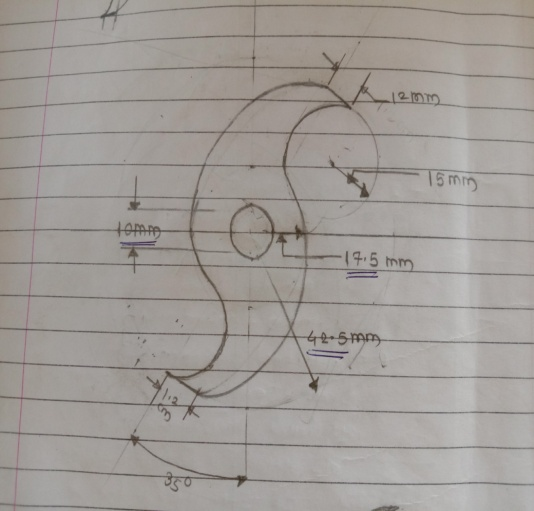 12mm
15mm
10mm
17.5 mm
42.5mm
12
35°